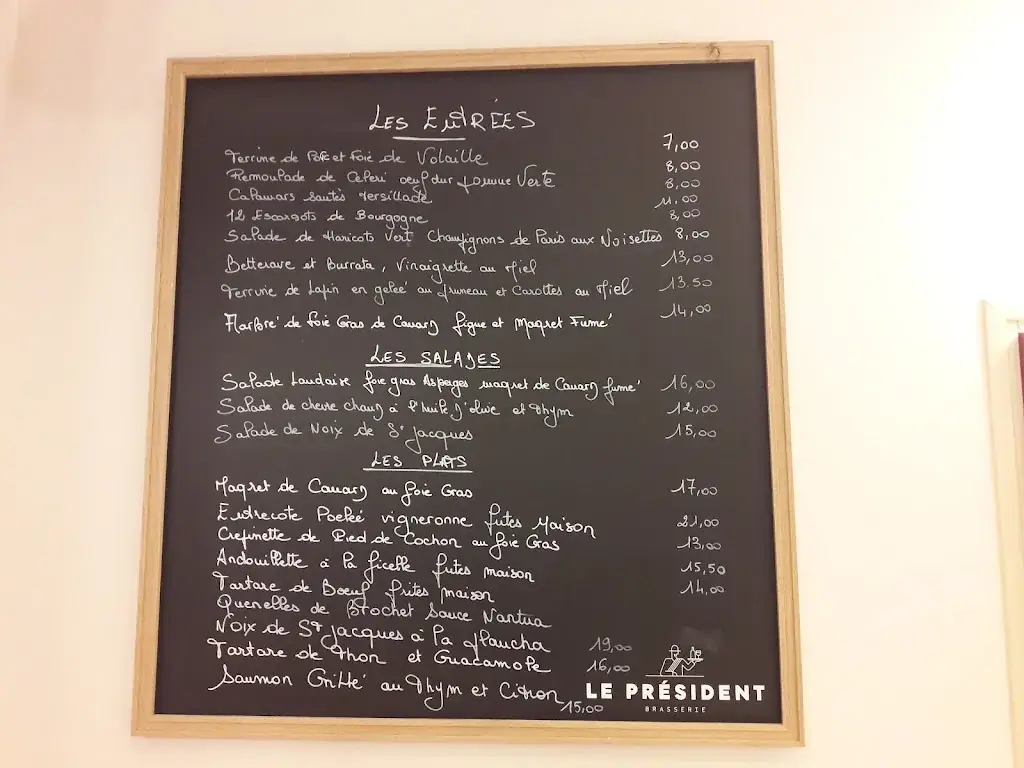 LES ENTRÉES
Terrine de Porc et Foie de Volaille 7,00
Remoulade de Celeri oeuf dur pomme Verte 8,00
Calamars sautés persillade 8,00
12 Escargots de Bourgogne 11.00
Salade de Haricots Vert Champignons de Paris aux Noisettes 8,00
8,00
Betterave et Burrata, Vinaigrette au Miel 13,00
Terrine de Lapin en gelée au pruneau et Carottes au Miel 13.50
Marbré de foie Gras de Canard figue et Magret Fumé 14,00
LES SALADES
Salade Landaise foie gras Asperges magret de Canard fumé 16,00
Salade de chevre chaud à l'huile d'olive et thym 12,00
Salade de Noix de St Jacques 15,00
LES PLATS
Magret de Canard au foie Gras 17,00
Entrecote Poelée vigneronne frites Maison 21,00
Crepinette de Pied de Cochon au foie Gras 13,00
Andouillette à la ficelle frites maison 15,50
Tartare de Boeuf frites maison 14,00
Quenelles de Brochet Sauce Nantua
Noix de St Jacques à la plancha 19,00
Tartare de thon et Guacamole 16,00
Saumon Grillé au thym et Citron 15,00
LE PRÉSIDENT
BRASSERIE